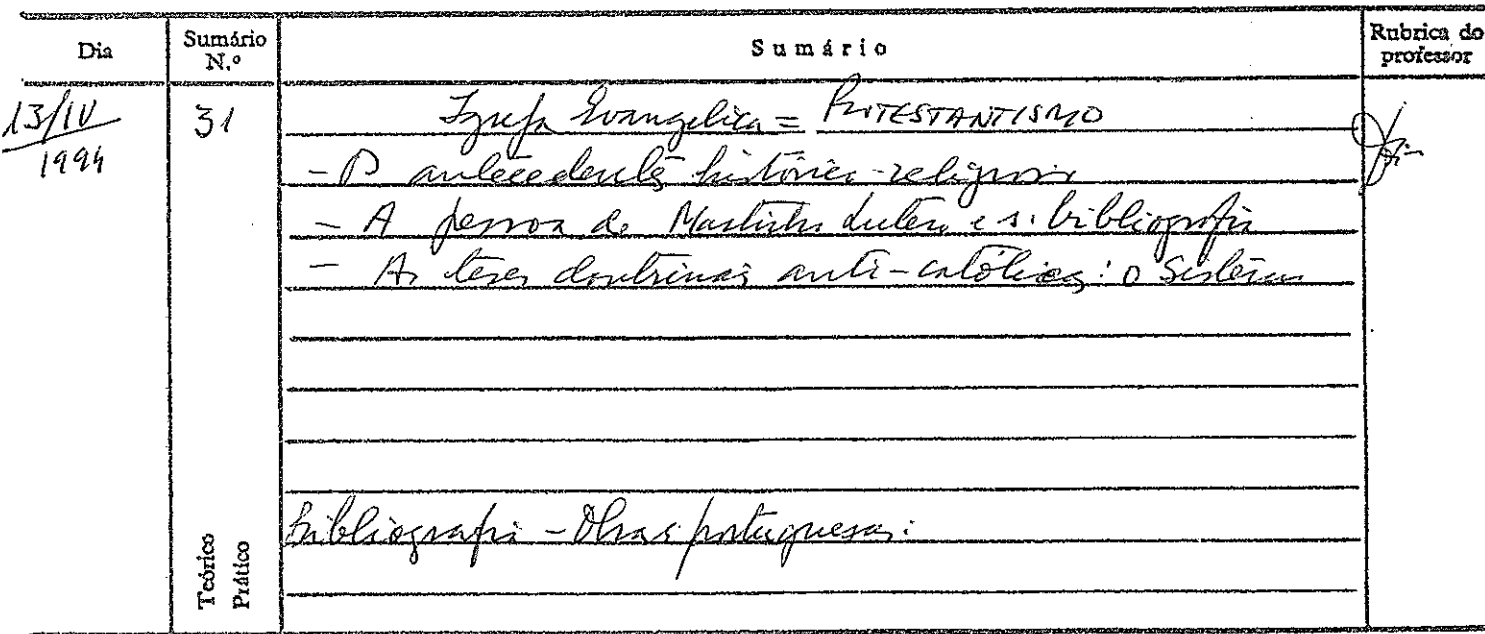 Dia Sumário N.º Sumário Rubrica do professor
13/IV 1994 31 Igreja Evangelica = PROTESTANTISMO
- antecedentes histórico-religiosos
- A pessoa de Martinho Lutero e s. bibliografia
- As teses doutrinais anti-católicas: o Sistema
Bibliografia - Obras portuguesas:
Teórico
Prático